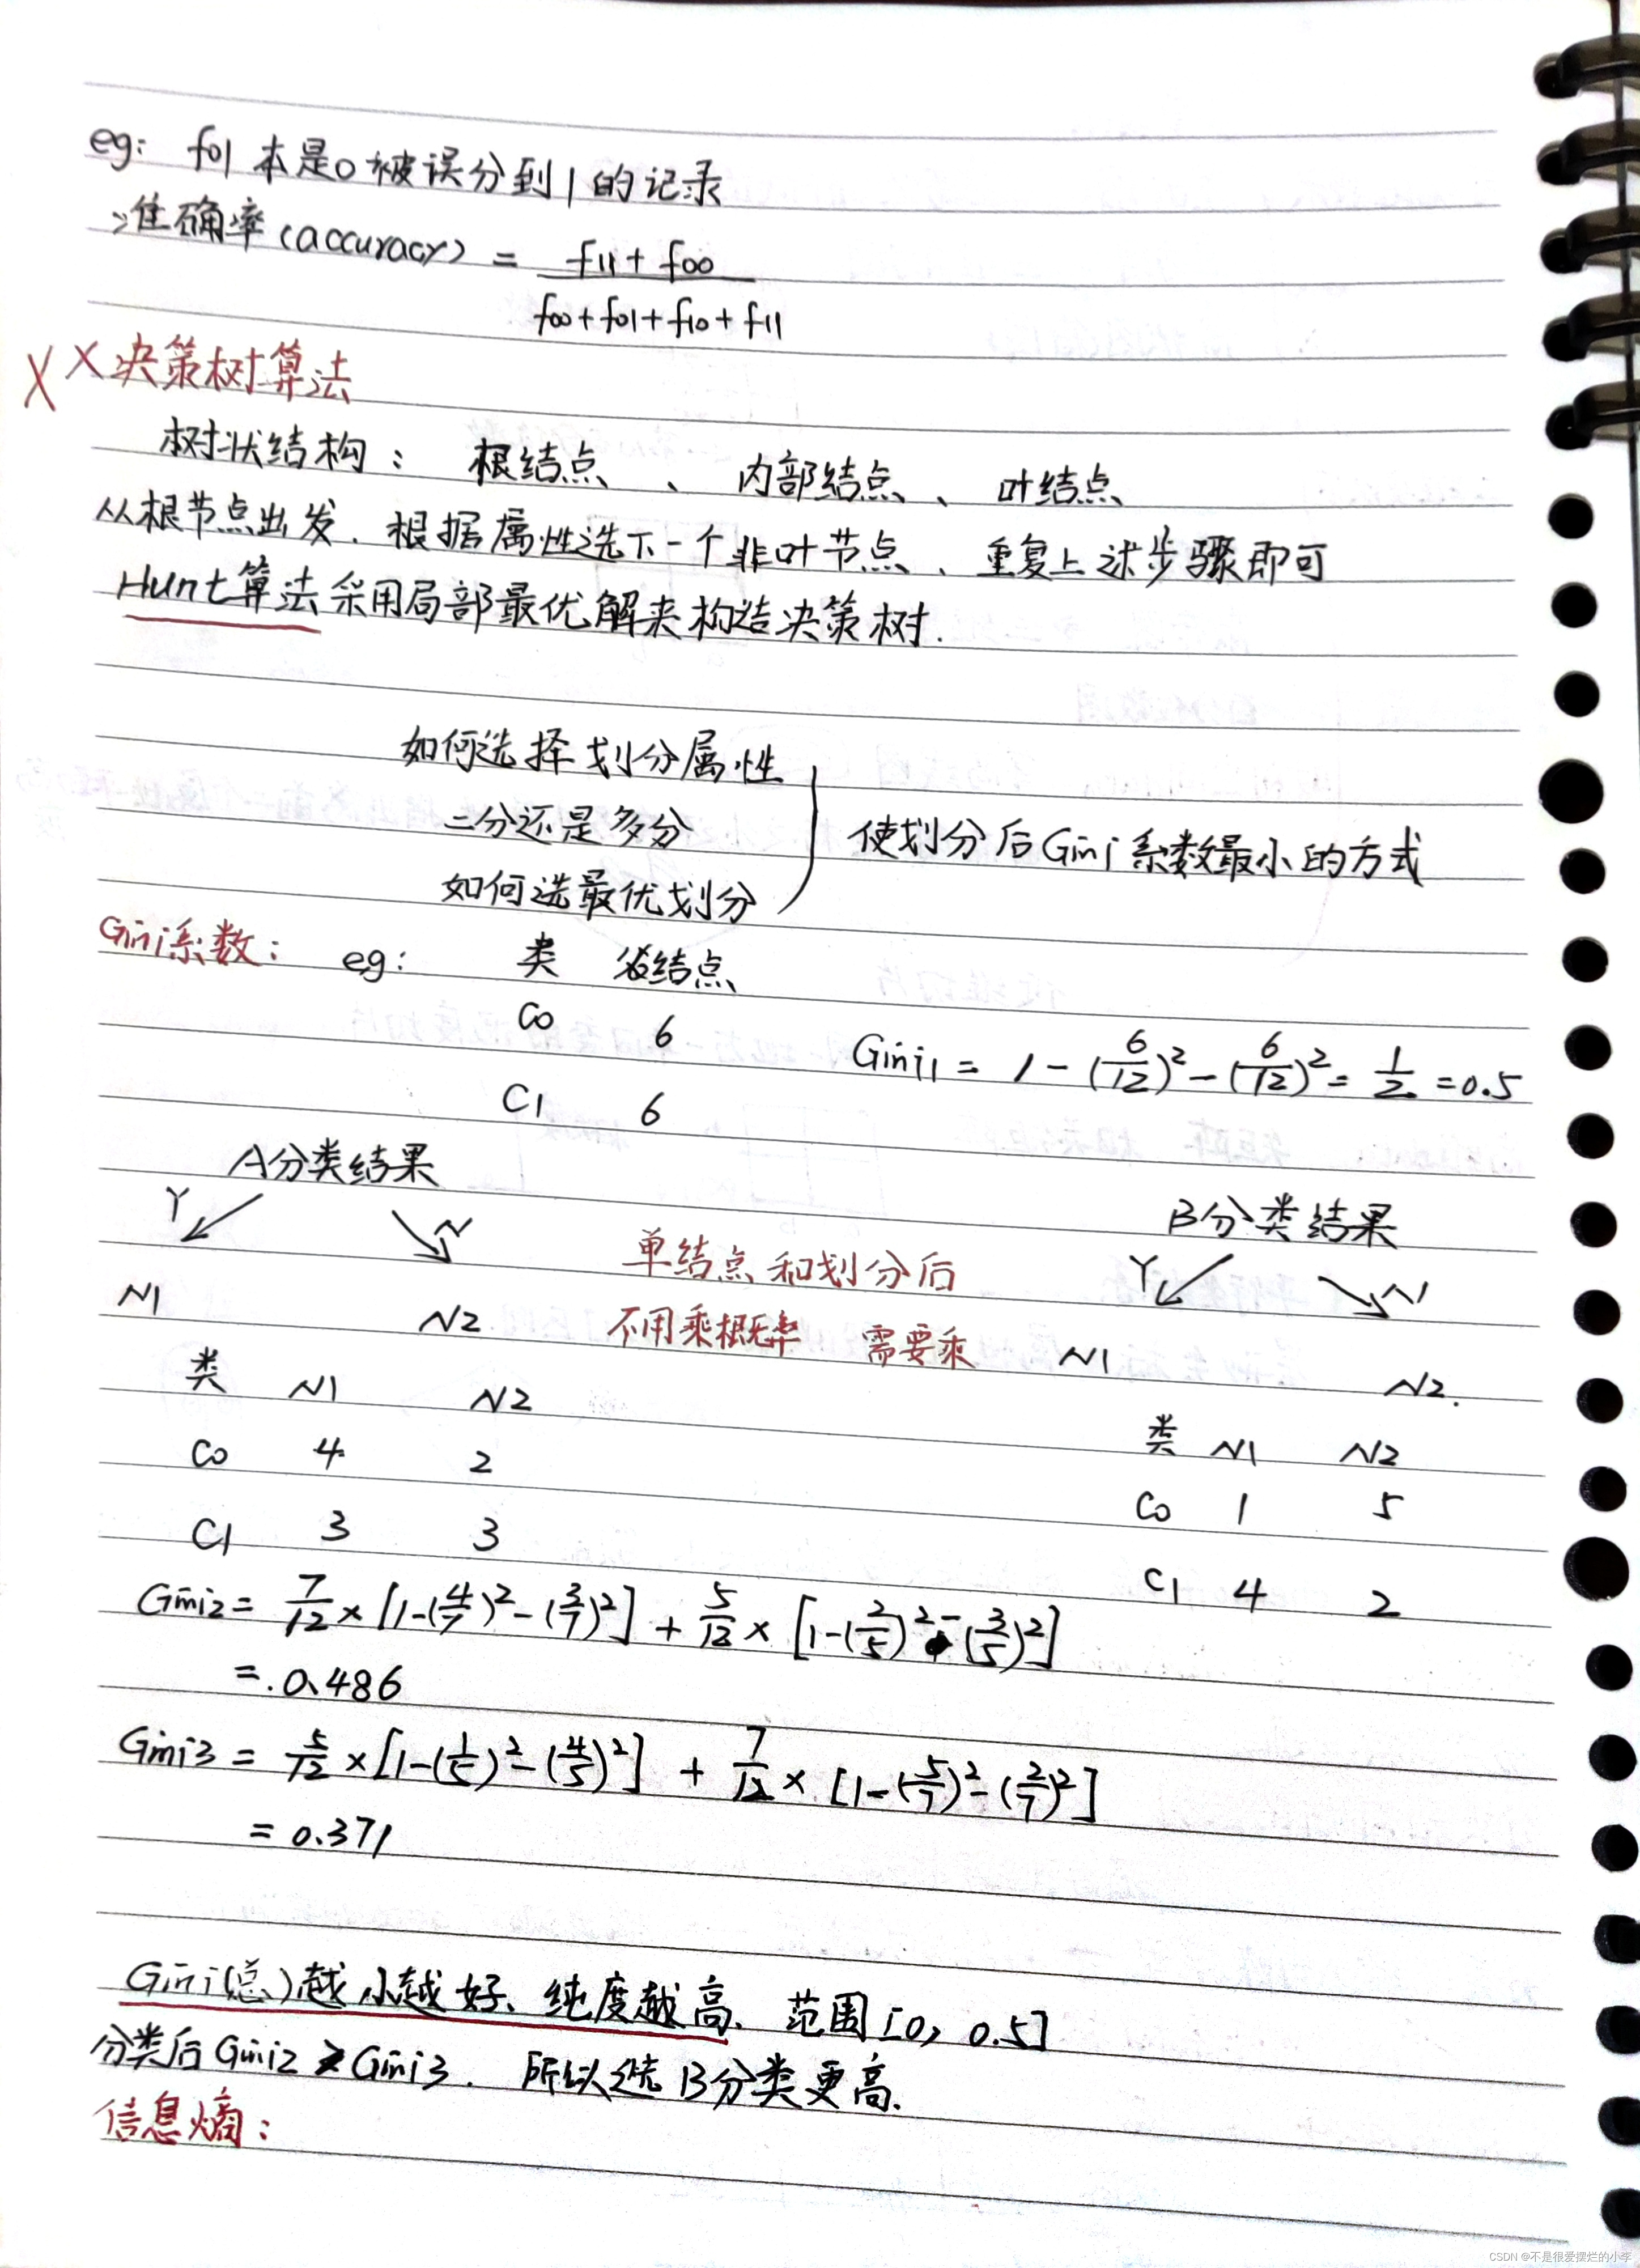 eg: f01 本是0被误分到1的记录
准确率(accuracy) = (f11 + f00) / (f00 + f01 + f10 + f11)
X X 决策树算法
树状结构： 根结点 、 内部结点 、 叶结点
从根节点出发. 根据属性选下一个非叶节点、重复上述步骤即可
Hunt算法采用局部最优解来构造决策树.
如何选择划分属性
二分还是多分
如何选最优划分
使划分后Gini系数最小的方式
Gini系数： eg: 类 父结点
C0 6
C1 6
Gini1 = 1 - (6/12)² - (6/12)² = 1/2 = 0.5
A分类结果
Y N
N1 N2
单结点和划分后
不用乘概率 需要乘
B分类结果
Y N
N1 N2.
类 N1 N2
C0 4 2
C1 3 3
类 N1 N2
C0 1 5
C1 4 2
Gini2 = 7/12 × [1-(4/7)² - (3/7)²] + 5/12 × [1-(2/5)² - (3/5)²]
= 0.486
Gini3 = 5/12 × [1-(1/5)² - (4/5)²] + 7/12 × [1-(5/7)² - (2/7)²]
= 0.371
Gini(总)越小越好、纯度越高、范围[0, 0.5]
分类后Gini2 > Gini3. 所以选B分类更高.
信息熵：
CSDN @不是很爱摆烂的小李